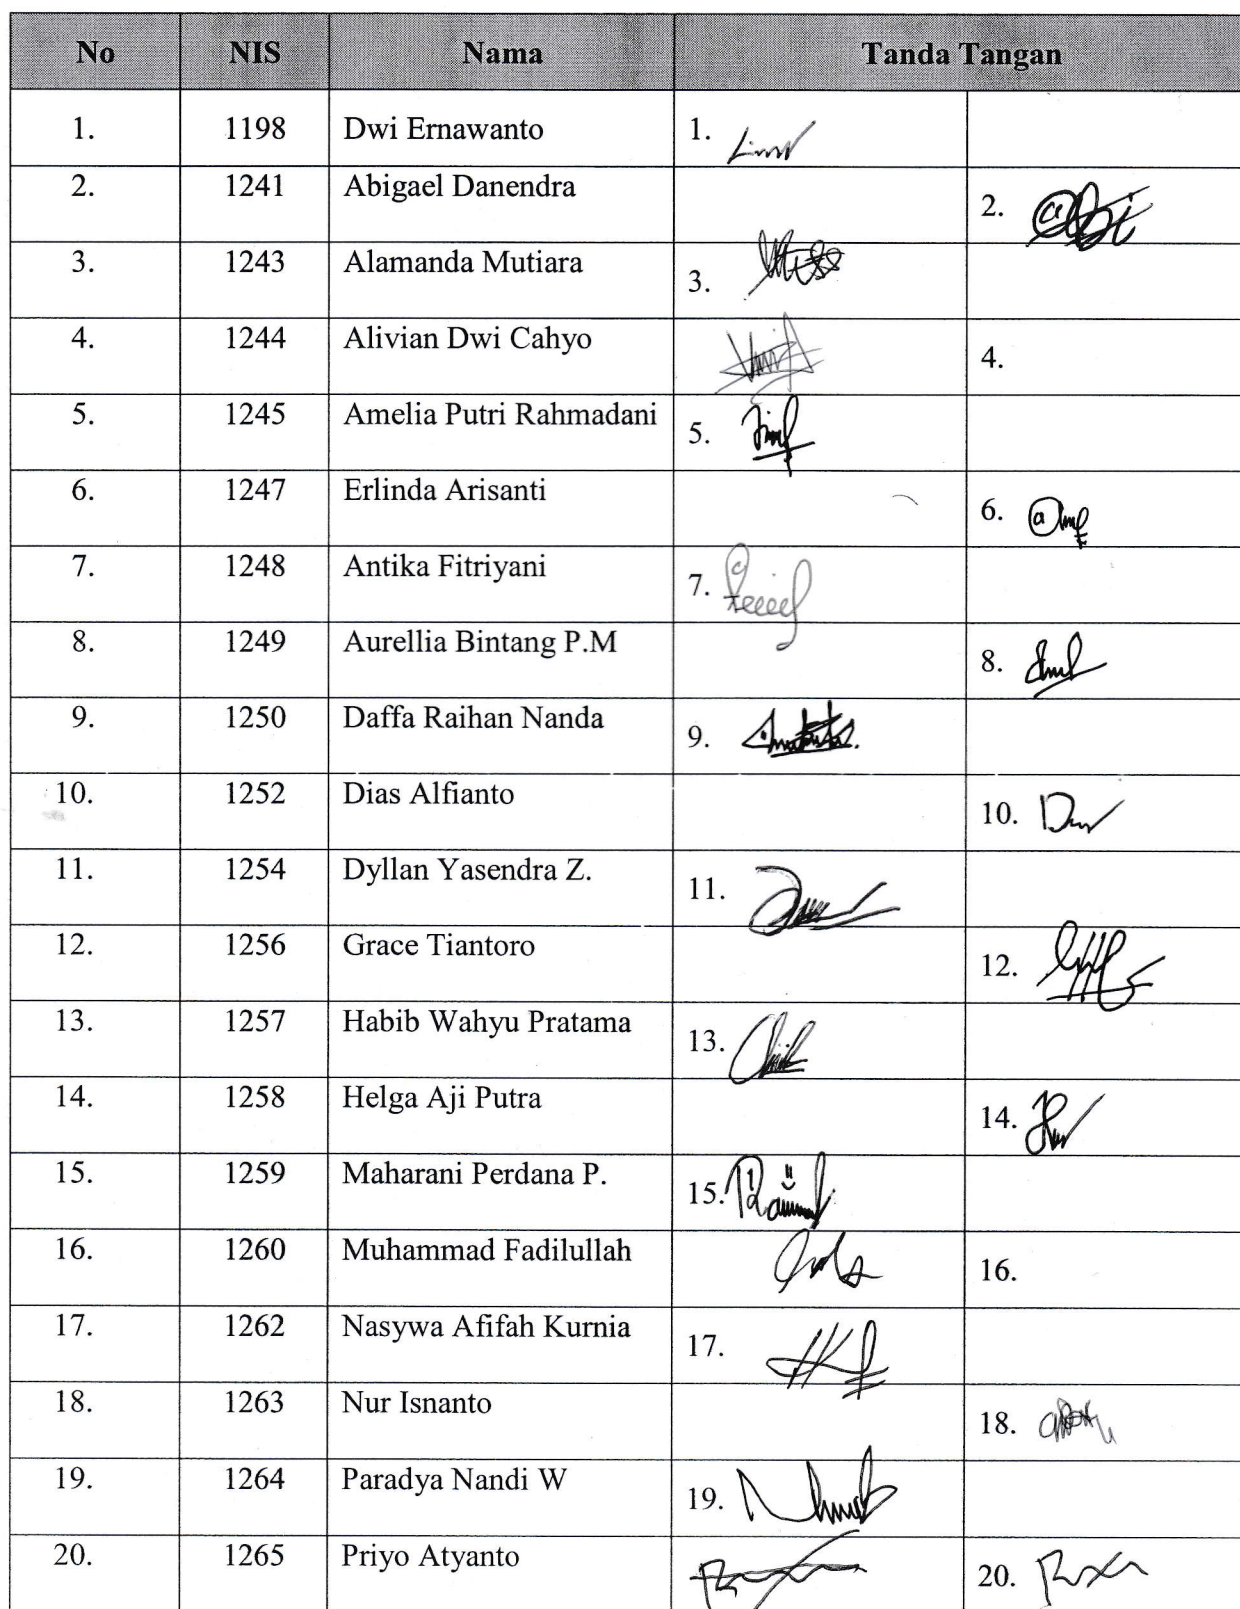 No NIS Nama Tanda Tangan
1. 1198 Dwi Ernawanto 1.
2. 1241 Abigael Danendra 2.
3. 1243 Alamanda Mutiara 3.
4. 1244 Alivian Dwi Cahyo 4.
5. 1245 Amelia Putri Rahmadani 5.
6. 1247 Erlinda Arisanti 6.
7. 1248 Antika Fitriyani 7.
8. 1249 Aurellia Bintang P.M 8.
9. 1250 Daffa Raihan Nanda 9.
10. 1252 Dias Alfianto 10.
11. 1254 Dyllan Yasendra Z. 11.
12. 1256 Grace Tiantoro 12.
13. 1257 Habib Wahyu Pratama 13.
14. 1258 Helga Aji Putra 14.
15. 1259 Maharani Perdana P. 15.
16. 1260 Muhammad Fadilullah 16.
17. 1262 Nasywa Afifah Kurnia 17.
18. 1263 Nur Isnanto 18.
19. 1264 Paradya Nandi W 19.
20. 1265 Priyo Atyanto 20.